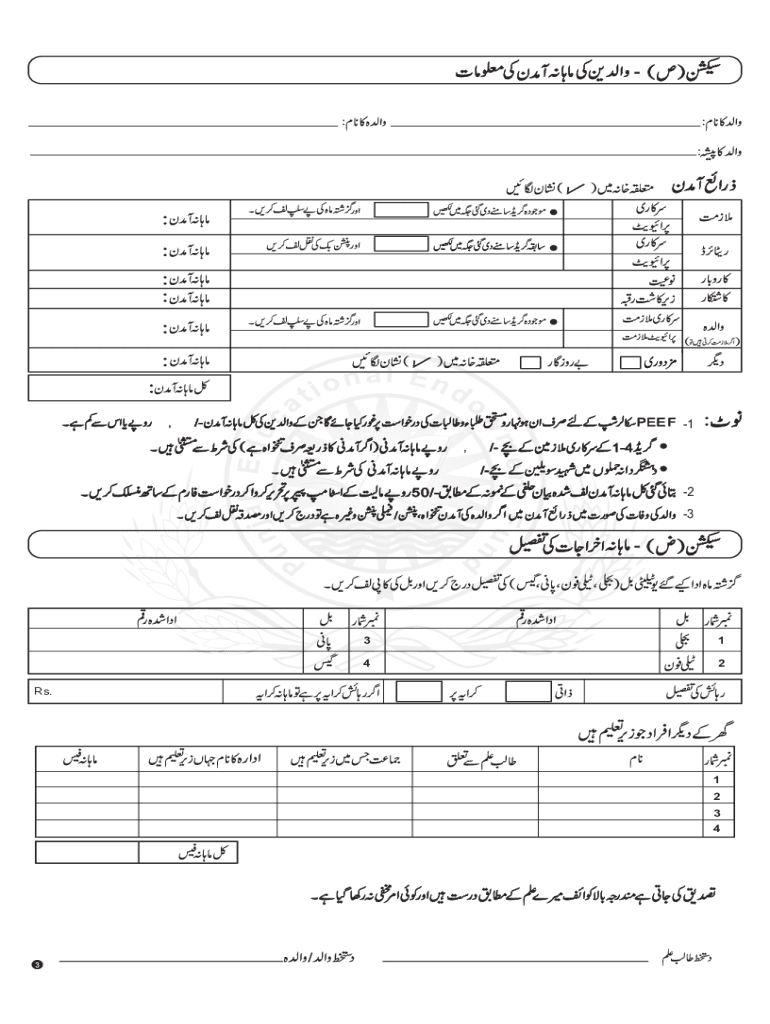 سیکشن (ص) - والدین کی ماہانہ آمدن کی معلومات
والد کا نام: والدہ کا نام:
والد کا پیشہ:
ذرائع آمدن متعلقہ خانہ میں (✓) نشان لگائیں
ملازمت سرکاری ● موجودہ گریڈ سامنے دی گئی جگہ میں لکھیں اور گزشتہ ماہ کی پے سلپ لف کریں۔ ماہانہ آمدن:
پرائیویٹ
ریٹائرڈ سرکاری ● سابقہ گریڈ سامنے دی گئی جگہ میں لکھیں اور پنشن بک کی نقل لف کریں ماہانہ آمدن:
پرائیویٹ
کاروبار نوعیت ماہانہ آمدن:
کاشتکار زیر کاشت رقبہ ماہانہ آمدن:
والدہ (اگر ملازمت کرتی ہیں تو) سرکاری ملازمت ● موجودہ گریڈ سامنے دی گئی جگہ میں لکھیں اور گزشتہ ماہ کی پے سلپ لف کریں۔ ماہانہ آمدن:
پرائیویٹ ملازمت
دیگر مزدوری بے روزگار متعلقہ خانہ میں (✓) نشان لگائیں ماہانہ آمدن:
کل ماہانہ آمدن:
نوٹ: 1- PEEF سکالرشپ کے لئے صرف ان ہونہار و مستحق طلباء و طالبات کی درخواست پر غور کیا جائے گا جن کے والدین کی کل ماہانہ آمدن -/ , روپے یا اس سے کم ہے۔
● گریڈ 4-1 کے سرکاری ملازمین کے بچے -/ , روپے ماہانہ آمدنی (اگر آمدنی کا ذریعہ صرف تنخواہ ہے) کی شرط سے مستثنیٰ ہیں۔
● دہشتگردانہ حملوں میں شہید سویلین کے بچے -/ روپے ماہانہ آمدنی کی شرط سے مستثنیٰ ہیں۔
2- بتائی گئی کل ماہانہ آمدن لف شدہ بیان حلفی کے نمونہ کے مطابق -/50 روپے مالیت کے اسٹامپ پیپر پر تحریر کروا کر درخواست فارم کے ساتھ منسلک کریں۔
3- والد کی وفات کی صورت میں ذرائع آمدن میں اگر والدہ کی آمدن تنخواہ، پنشن/فیملی پنشن وغیرہ ہے تو درج کریں اور مصدقہ نقل لف کریں۔
سیکشن (ض) - ماہانہ اخراجات کی تفصیل
گزشتہ ماہ ادا کیے گئے یوٹیلیٹی بل (بجلی، ٹیلی فون، پانی، گیس) کی تفصیل درج کریں اور بل کی کاپی لف کریں۔
نمبر شمار بل ادا شدہ رقم نمبر شمار بل ادا شدہ رقم
1 بجلی 3 پانی
2 ٹیلی فون 4 گیس
رہائش کی تفصیل ذاتی کرایہ پر اگر رہائش کرایہ پر ہے تو ماہانہ کرایہ Rs.
گھر کے دیگر افراد جو زیر تعلیم ہیں
نمبر شمار نام طالب علم سے تعلق جماعت جس میں زیر تعلیم ہیں ادارہ کا نام جہاں زیر تعلیم ہیں ماہانہ فیس
1
2
3
4
کل ماہانہ فیس
تصدیق کی جاتی ہے مندرجہ بالا کوائف میرے علم کے مطابق درست ہیں اور کوئی امر مخفی نہ رکھا گیا ہے۔
دستخط طالب علم دستخط والد/والدہ
3